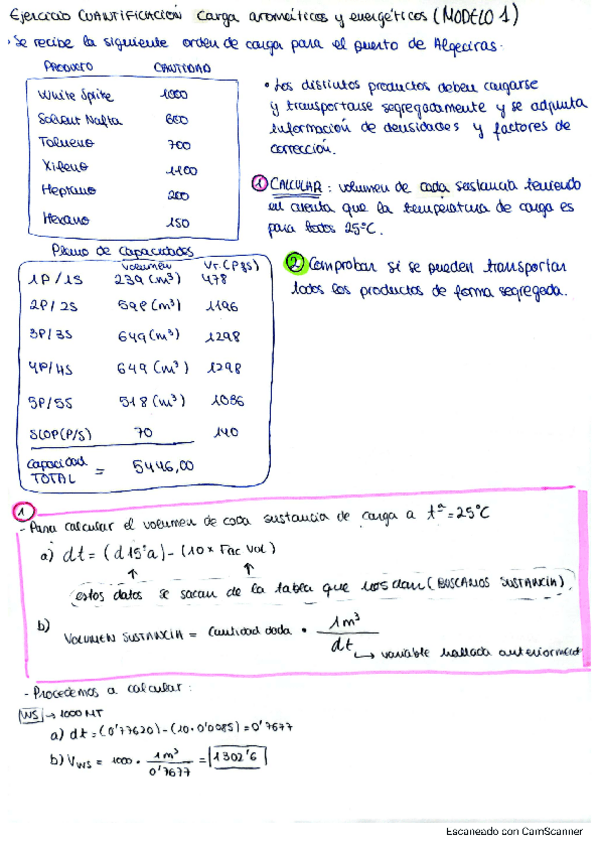 Ejercicio CUANTIFICACIÓN Carga aromáticos y energéticos (MODELO 1)
· Se recibe la siguiente orden de carga para el puerto de Algeciras.
PRODUCTO CANTIDAD
White Sprite 1000
Solvent Nafta 600
Tolueno 700
Xileno 1100
Heptano 200
Hexano 150
• Los distintos productos deben cargarse
y transportarse segregadamente y se adjunta
información de densidades y factores de
corrección.
① CALCULAR: volumen de cada sustancia teniendo
en cuenta que la temperatura de carga es
para todos 25°C.
② Comprobar si se pueden transportar
todos los productos de forma segregada.
Plano de Capacidades
Volumen VT.(P y S)
1P/1S 239 (m³) 478
2P/2S 598 (m³) 1196
3P/3S 649 (m³) 1298
4P/4S 649 (m³) 1298
5P/5S 518 (m³) 1036
SLOP(P/S) 70 140
Capacidad TOTAL = 5446,00
1
- Para calcular el volumen de cada sustancia de carga a tª = 25°C
a) dt = (d 15ª) - (10 × Fac Vol)
estos datos se sacan de la tabla que nos dan (BUSCAMOS SUSTANCIA)
b) VOLUMEN SUSTANCIA = Cantidad dada · 1m³ / dt
variable hallada anteriormente
- Procedemos a calcular:
WS → 1000 MT
a) dt = (0'77620) - (10 · 0'00085) = 0'7677
b) Vws = 1000 · 1m³ / 0'7677 = 1302'6
Escaneado con CamScanner